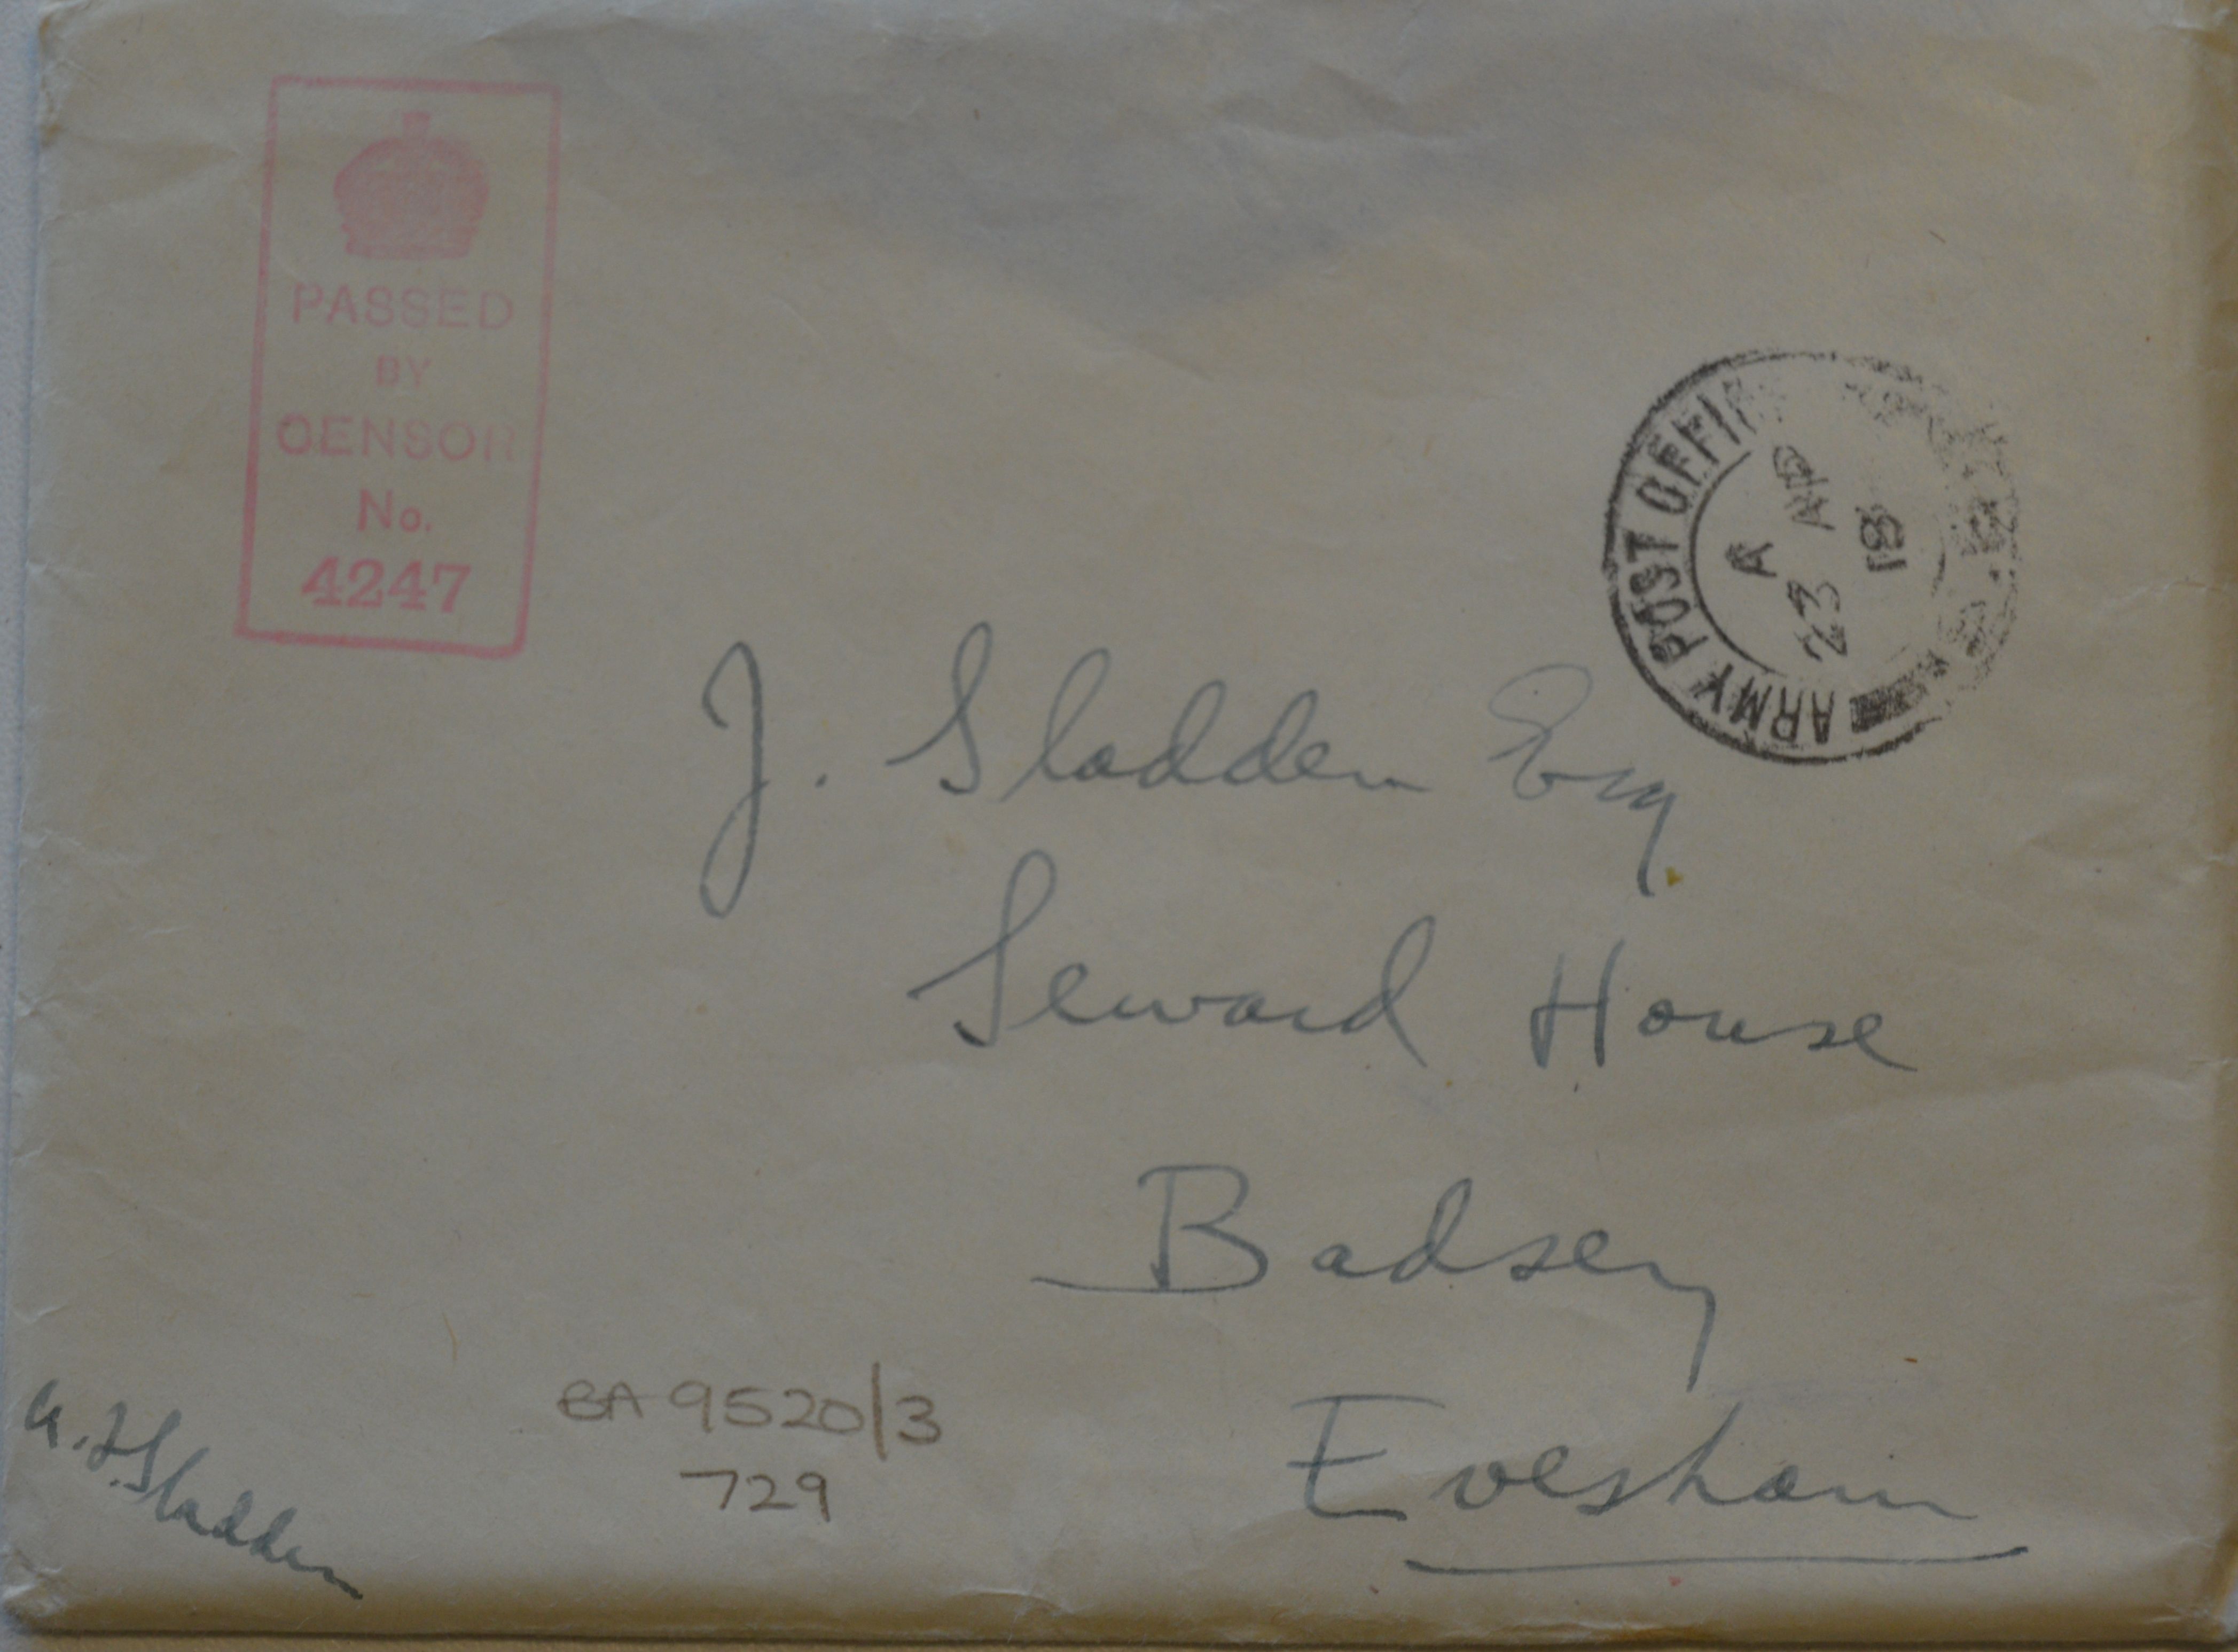 PASSED
BY
CENSOR
No.
4247
ARMY POST OFFI
A
23 AP
18
J. Sladden Esq
Seward House
Badsey
Evesham
BA 9520/3
729
Sladden